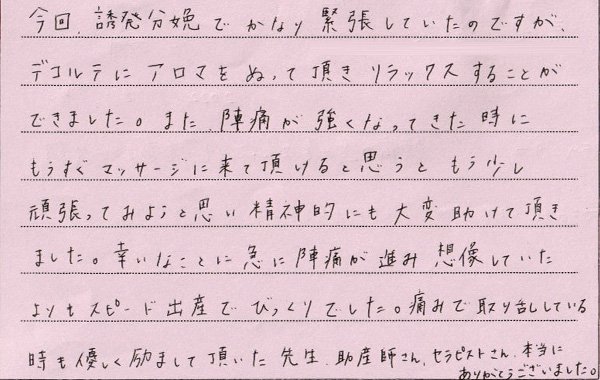 今回、誘発分娩でかなり緊張していたのですが、
デコルテにアロマをぬって頂きリラックスすることが
できました。また、陣痛が強くなってきた時に
もうすぐマッサージに来て頂けると思うともう少し
頑張ってみようと思い精神的にも大変助けて頂き
ました。幸いなことに急に陣痛が進み想像していた
よりもスピード出産でびっくりでした。痛みで取り乱している
時も優しく励まして頂いた先生、助産師さん、セラピストさん、本当に
ありがとうございました。